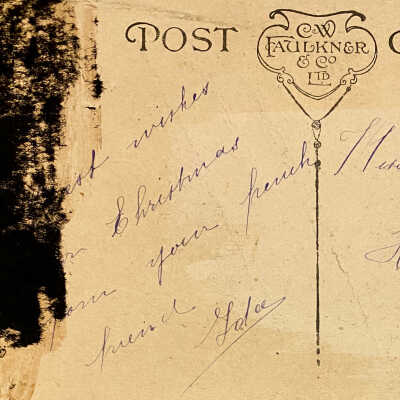 POST
C.W.
FAULKNER
& Co
LTD
est wishes
Christmas
your french
friend Ida